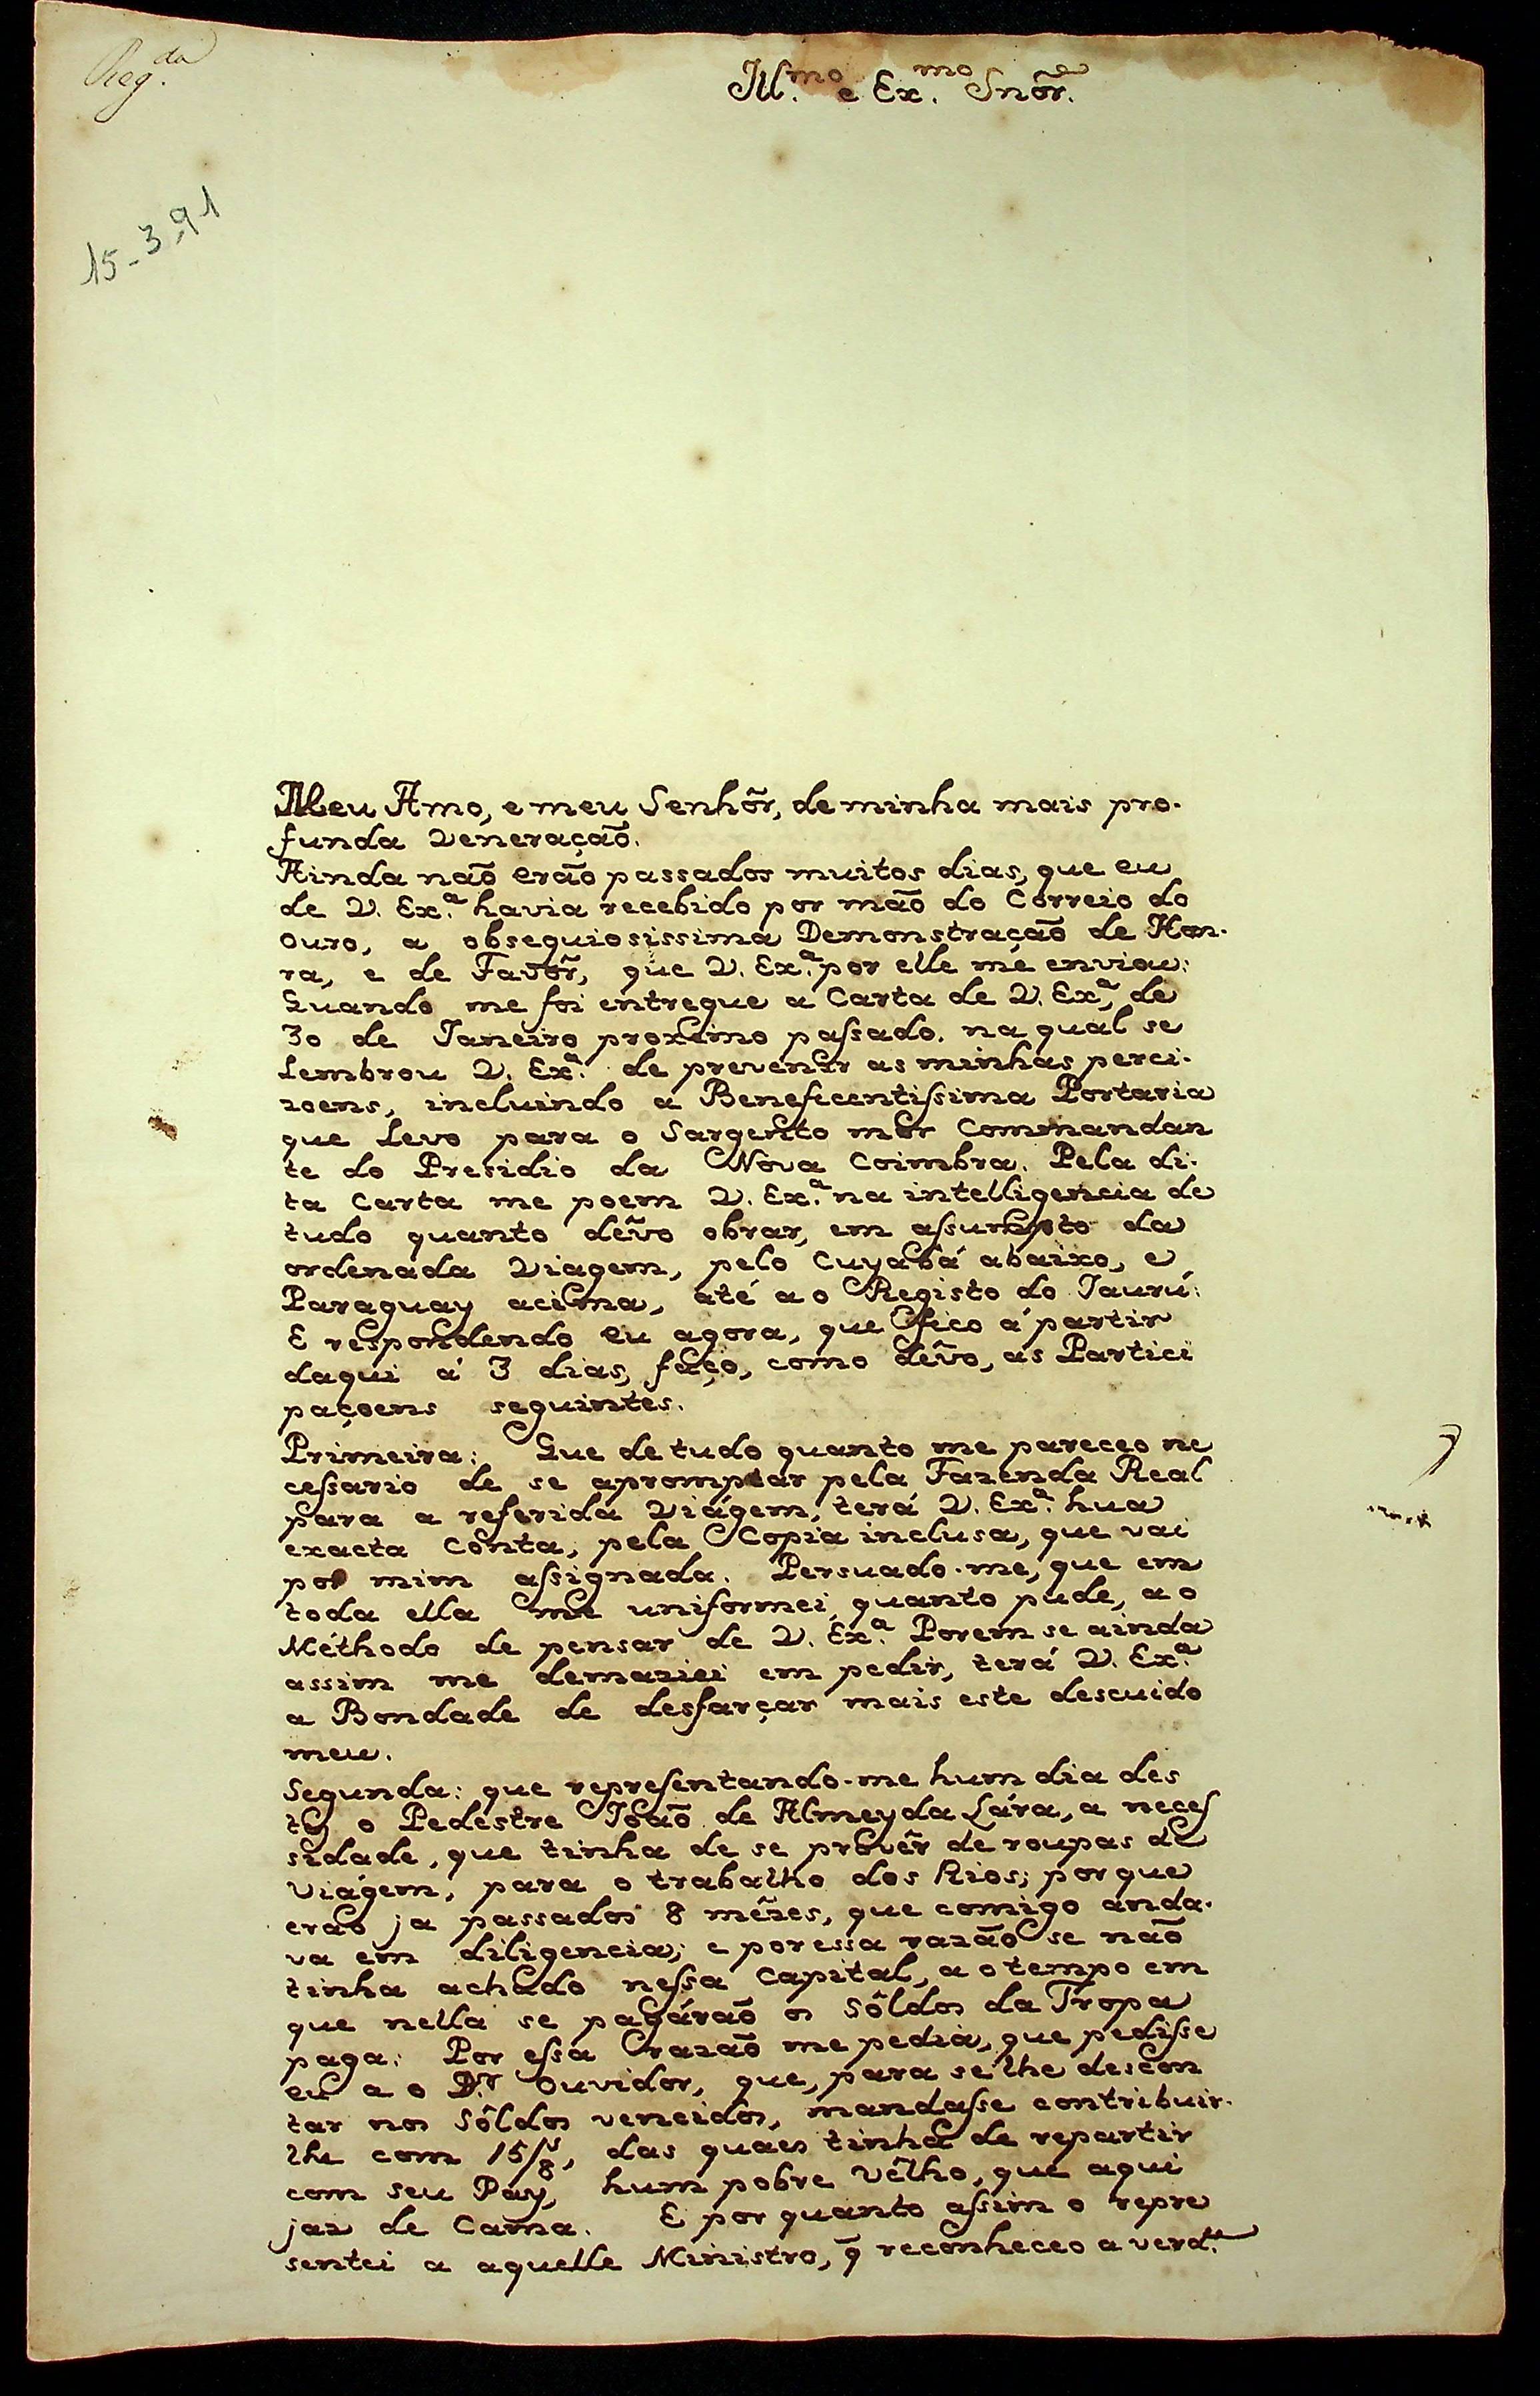 Reg.da
Ill.mo e Ex.mo Snõr.
15-3-91
Meu Amo, e meu Senhõr, de minha mais pro-
funda Veneração.
Ainda não erão passados muitos dias, que eu
de V. Ex.a havia recebido por mão do Correio do
ouro, a obsequiosissima Demonstração de Hon-
ra, e de Favõr, que V. Ex.a por elle me enviou:
Quando me foi entregue a Carta de V. Ex.a, de
30 de Janeiro proximo paſsado. na qual se
Lembrou V. Ex.a de prevenir as minhas perci-
zoens, incluindo a Beneficentiſsima Portaria
que Levo para o Sargento mór Commandan
te do Presidio da Nova Coimbra. Pela di-
ta Carta me poem V. Ex.a na intelligencia de
tudo quanto dêvo obrar, em aſsumpto da
ordenada Viagem, pelo Cuyabá abaixo, e
Paraguay acima, até ao Registo do Jaurú:
E respondendo eu agora, que fico á partir
daqui á 3 dias, faço, como dêvo, as Partici
paçoens seguintes.
Primeira: Que de tudo quanto me pareceo ne
ceſsario de se apromptar pela Fazenda Real
para a referida Viágem, terá V. Ex.a hua
exacta Conta, pela Copia inclusa, que vai
por mim aſsignada. Persuado-me, que em
toda ella me uniformei, quanto pude, ao
Méthodo de pensar de V. Ex.a Porem se ainda
assim me demaziei em pedir, terá V. Ex.a
a Bondade de desfarçar mais este descuido
meu.
Segunda: que repreſentando-me hum dia des
tes o Pedestre João de Almeyda Lára, a neceſ
sidade, que tinha de se provêr de roupas de
Viágem, para o trabalho dos Rios; porque
erão ja passados 8 mêzes, que comigo anda-
va em diligencia; e por essa razão se não
tinha achado neſsa Capital, ao tempo em
que nella se pagárão os Sôldos da Tropa
paga: Por eſsa razão me pedia, que pediſse
eu a o D.r Ouvidor, que, para se lhe descon
tar nos Sôldos vencidos, mandaſse contribuir-
lhe com 15/8.s, das quaes tinha de repartir
com seu Pay, hum pobre Vêlho, que aqui
jaz de Cama. E por quanto aſsim o repre
sentei a aquelle Ministro, q̃ reconheceo a verd.e